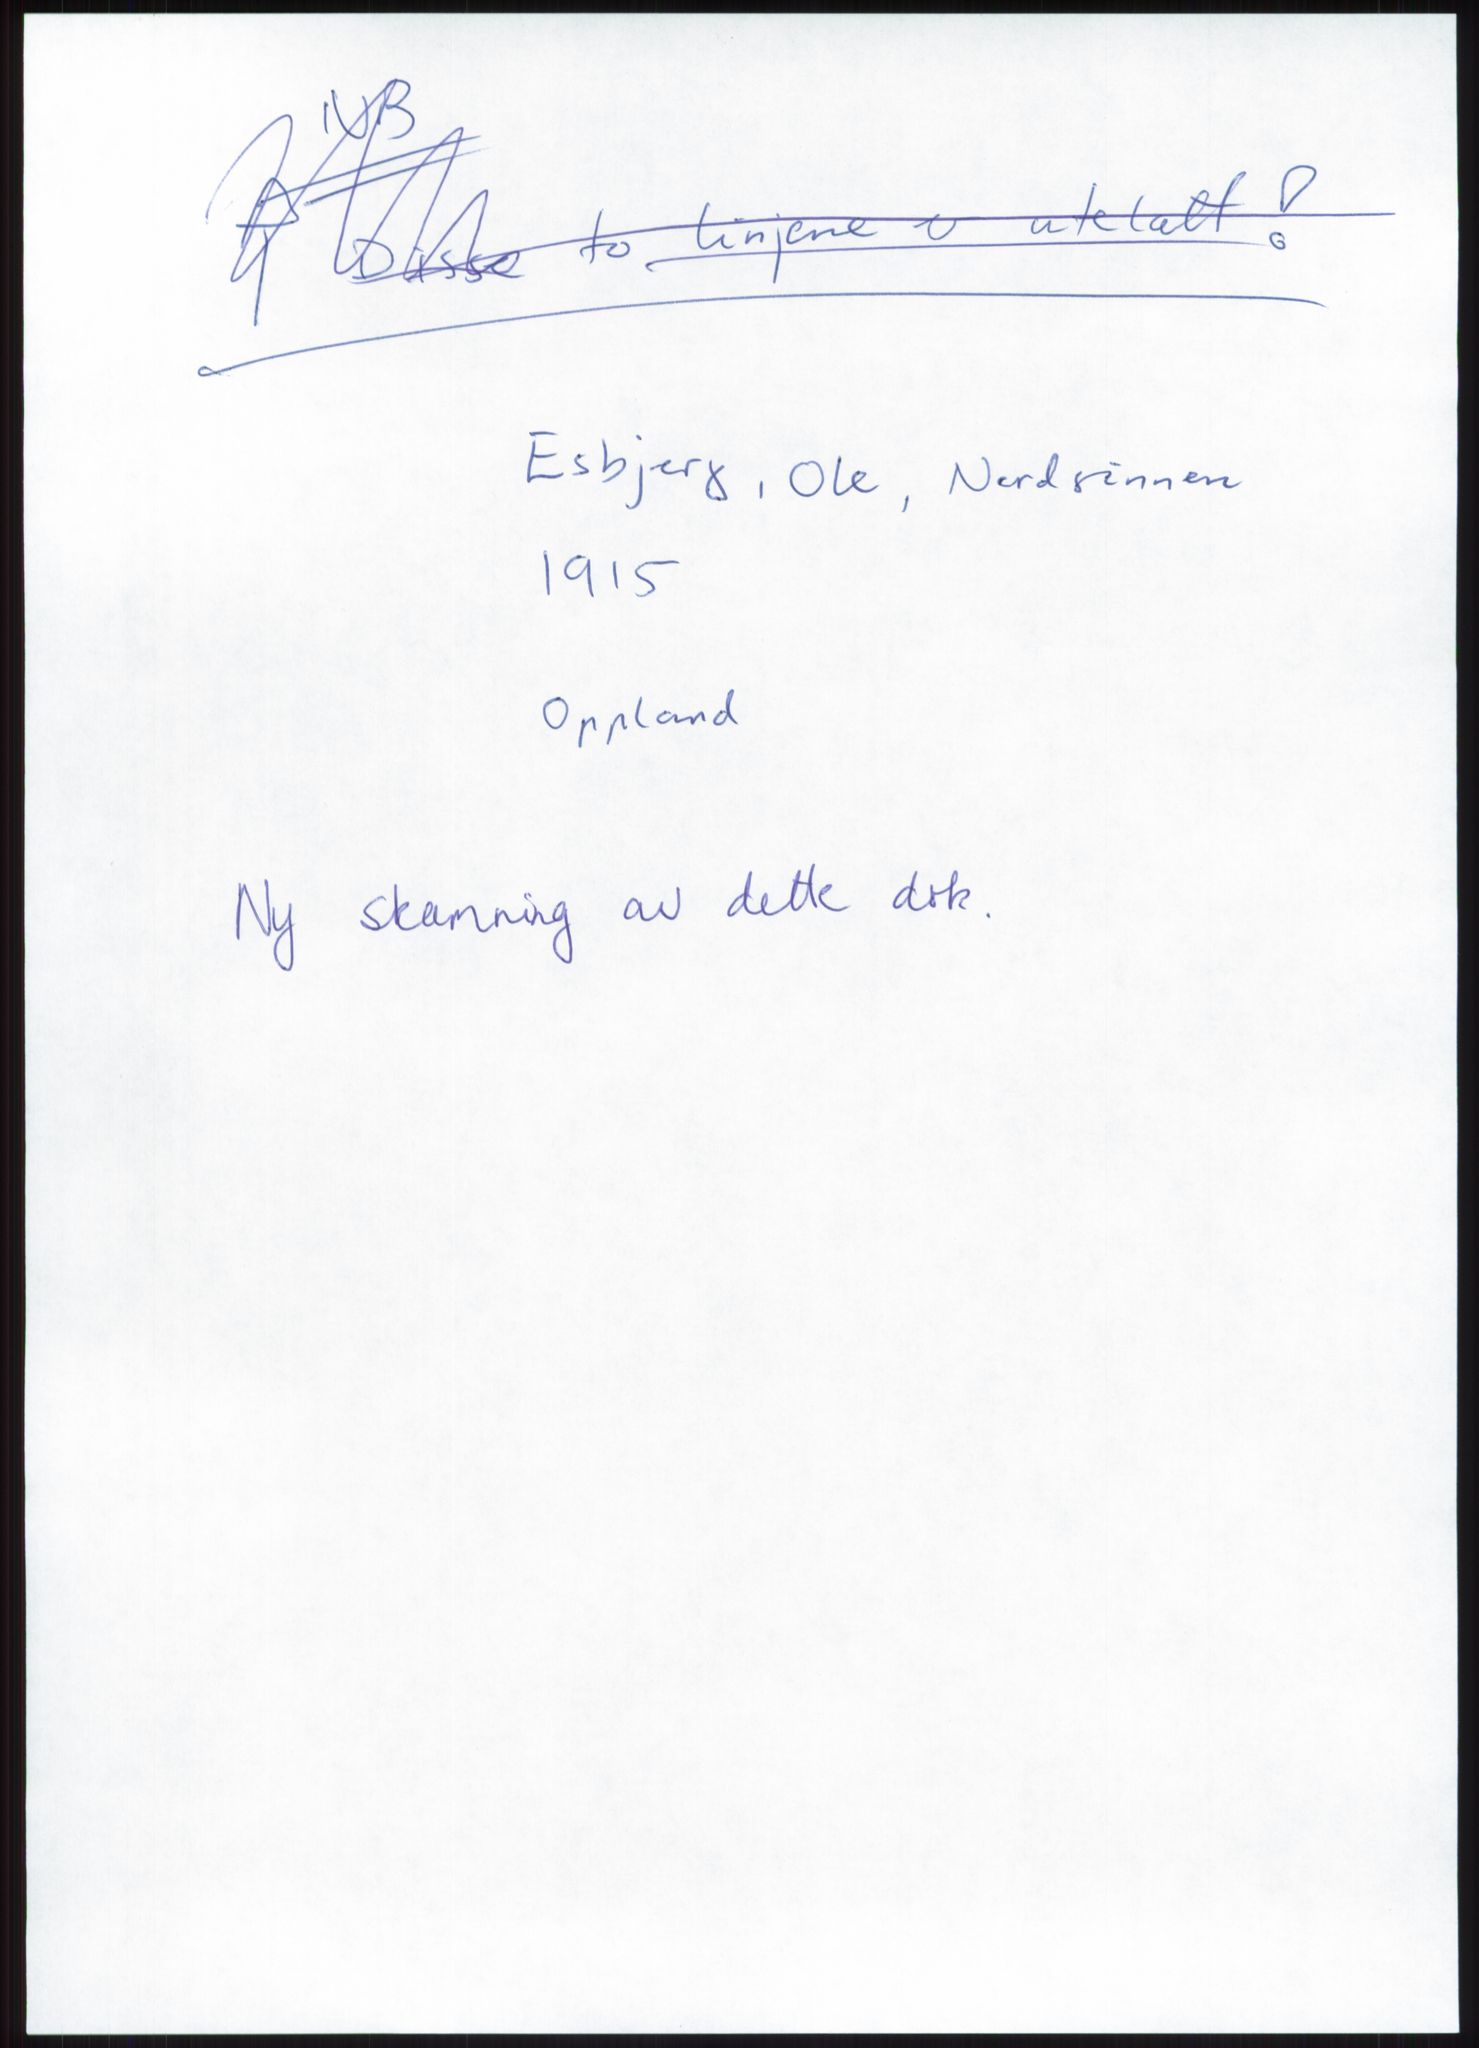 NB
Disse to linjene er utelatt!
Esbjerg, Ole, Nordsinnen
1915
Oppland
Ny skanning av dette dok.